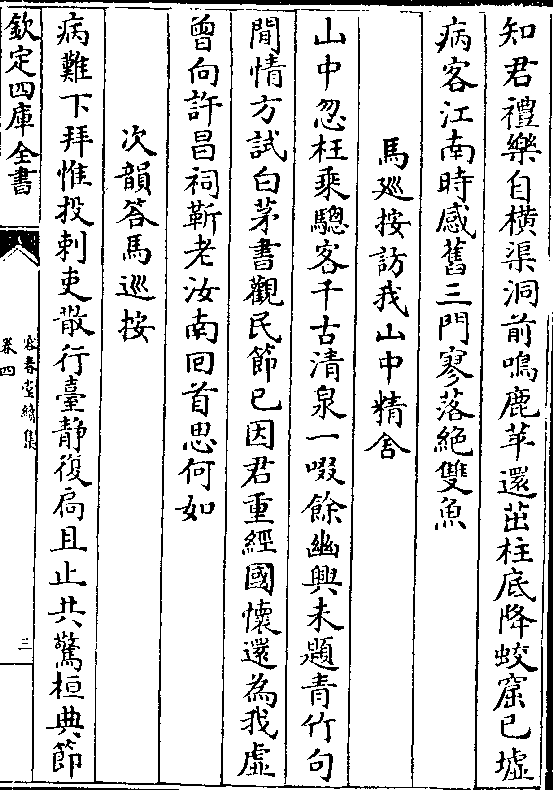 知君禮樂自橫渠洞前鳴鹿苹還茁柱底降蛟窟已墟
病客江南時感舊三門寥落絕雙魚
馬廵按訪我山中精舍
山中忽枉乘驄客千古清泉一啜餘幽興未題青竹句
閒情方試白茅書觀民節已因君重經國懷還為我虛
曾向許昌祠靳老汝南回首思何如
次韻答馬巡按
病難下拜惟投刺吏散行臺静復扄且止共驚桓典節
欽定四庫全書
容春堂續集
卷四
三